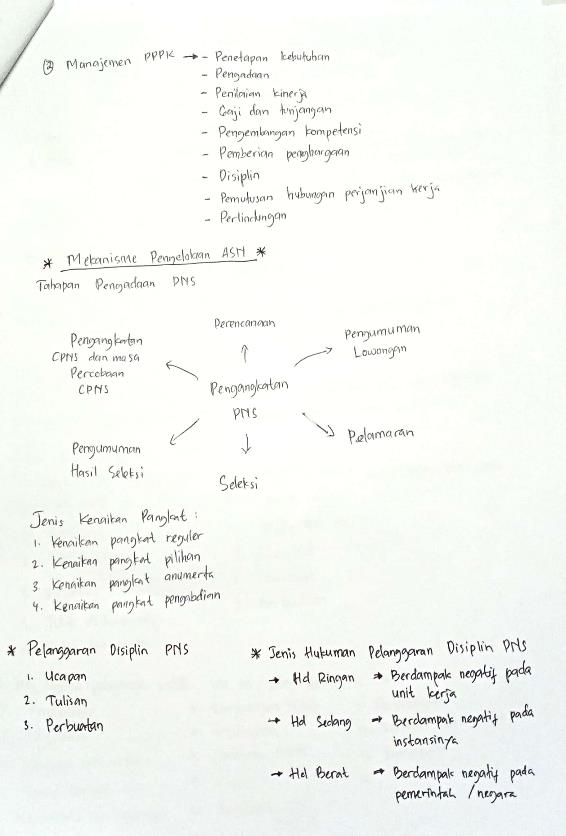 ② Manajemen PPPK → - Penetapan kebutuhan
- Pengadaan
- Penilaian kinerja
- Gaji dan tunjangan
- Pengembangan kompetensi
- Pemberian penghargaan
- Disiplin
- Pemutusan hubungan perjanjian kerja
- Perlindungan
* Mekanisme Pengelolaan ASN *
Tahapan Pengadaan PNS
Perencanaan
Pengumuman
Lowongan
Pelamaran
Seleksi
Pengumuman
Hasil Seleksi
Pengangkatan
CPNS dan masa
Percobaan
CPNS
Pengangkatan
PNS
Jenis Kenaikan Pangkat :
1. Kenaikan pangkat reguler
2. Kenaikan pangkat pilihan
3. Kenaikan pangkat anumerta
4. Kenaikan pangkat pengabdian
* Pelanggaran Disiplin PNS
1. Ucapan
2. Tulisan
3. Perbuatan
* Jenis Hukuman Pelanggaran Disiplin PNS
→ Hd Ringan → Berdampak negatif pada
unit kerja
→ Hd Sedang → Berdampak negatif pada
instansinya
→ Hd Berat → Berdampak negatif pada
pemerintah / negara